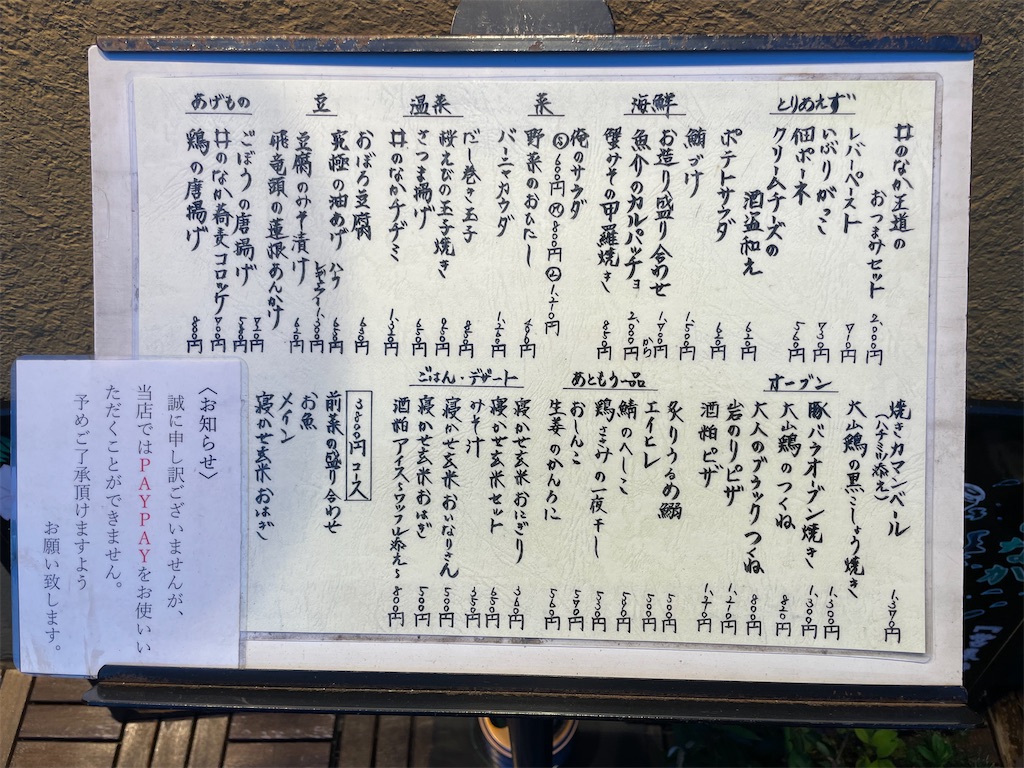 とりあえず
井のなか王道の
おつまみセット 2,000円
レバーペースト 710円
いぶりがっこ 730円
佃ポーネ 560円
クリームチーズの
酒盗和え 620円
ポテトサラダ 620円
海鮮
鮪づけ 1,500円
お造り盛り合わせ 1,700円から
魚介のカルパッチョ 2,000円
蟹みその甲羅焼き 850円
菜
俺のサラダ
小600円 中800円 大1,210円
野菜のおひたし
バーニャカウダ
温菜
だし巻き玉子
桜えびの玉子焼き
さつま揚げ
井のなかチヂミ
豆
おぼろ豆腐
究極の油あげ
ハーフ 650円
レギュラー 1,300円
豆腐のみそ漬け
飛竜頭の蓮根あんかけ
あげもの
ごぼうの唐揚げ
井のなか蕎麦コロッケ
鶏の唐揚げ 800円
オーブン
焼きカマンベール
(ハチミツ添え) 1,370円
大山鶏の黒こしょう焼き 1,300円
豚バラオーブン焼き 1,300円
大山鶏のつくね 820円
大人のブラックつくね 800円
岩のりピザ 1,210円
酒粕ピザ 1,210円
あともう一品
炙りうるめ鰯 500円
エイヒレ 500円
鯖のへしこ 590円
鶏ささみの一夜干し 530円
おしんこ 570円
生姜のかんろに 560円
ごはん・デザート
寝かせ玄米おにぎり 360円
寝かせ玄米セット 650円
みそ汁 350円
寝かせ玄米おいなりさん 500円
寝かせ玄米おはぎ 500円
酒粕アイス〜ワッフル添え〜 800円
3800円コース
前菜の盛り合わせ
お魚
メイン
寝かせ玄米おはぎ
〈お知らせ〉
誠に申し訳ございませんが、
当店ではPAYPAYをお使いい
ただくことができません。
予めご了承頂けますよう
お願い致します。